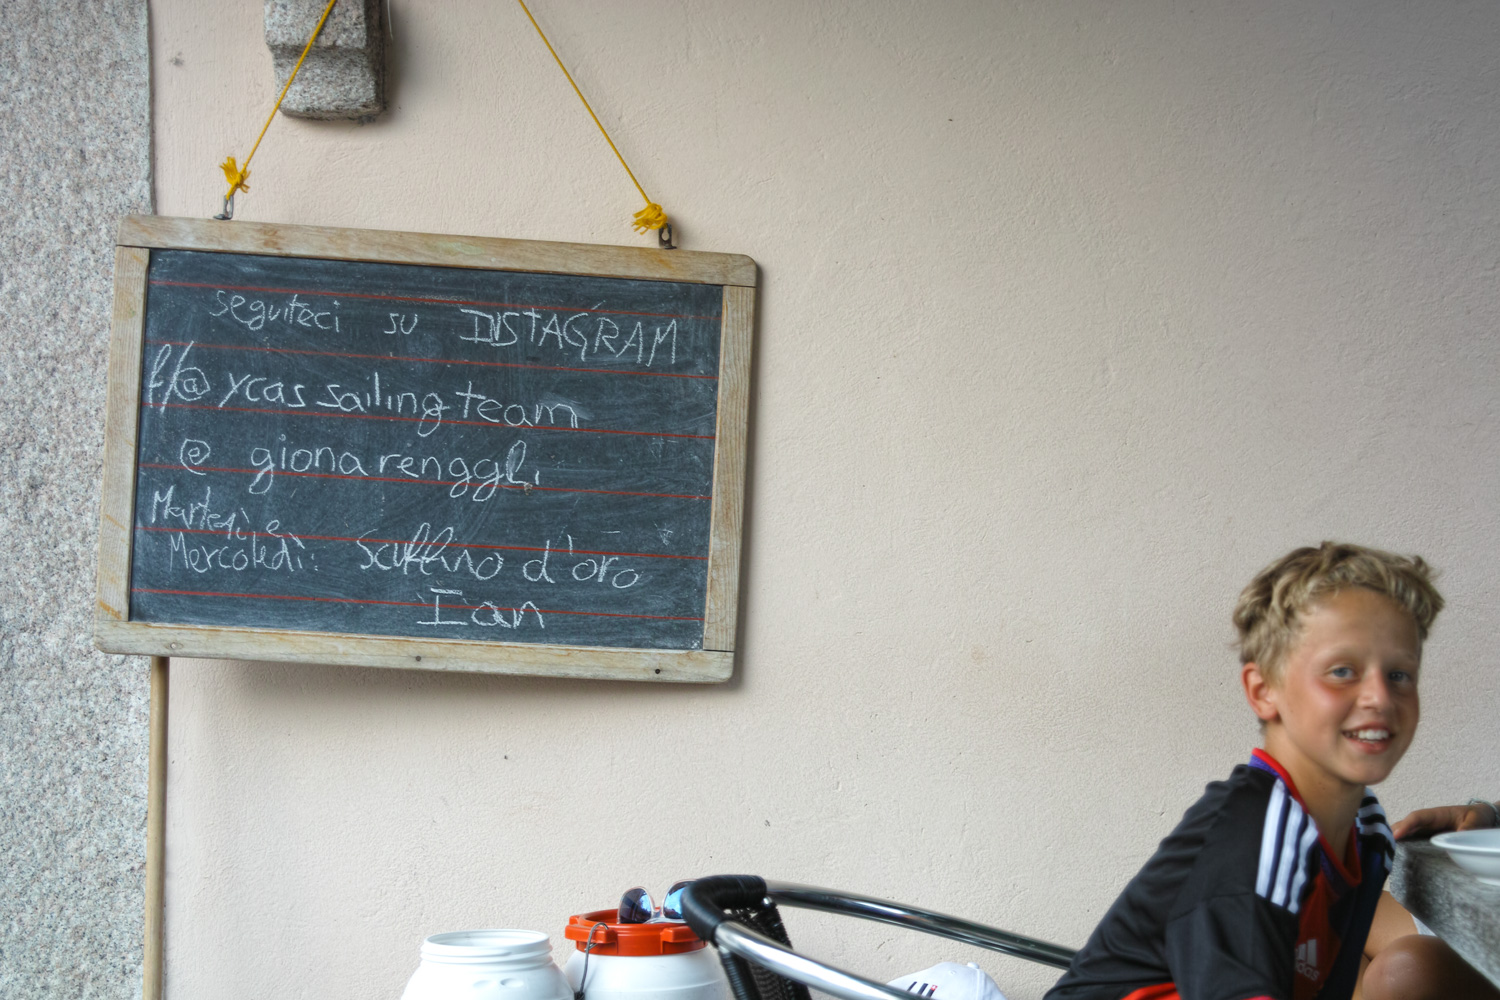 seguiteci su INSTAGRAM
f/@ ycas sailing team
@ giona renggli
Martedì e
Mercoledì: Scuffino d'oro
Ian
adidas